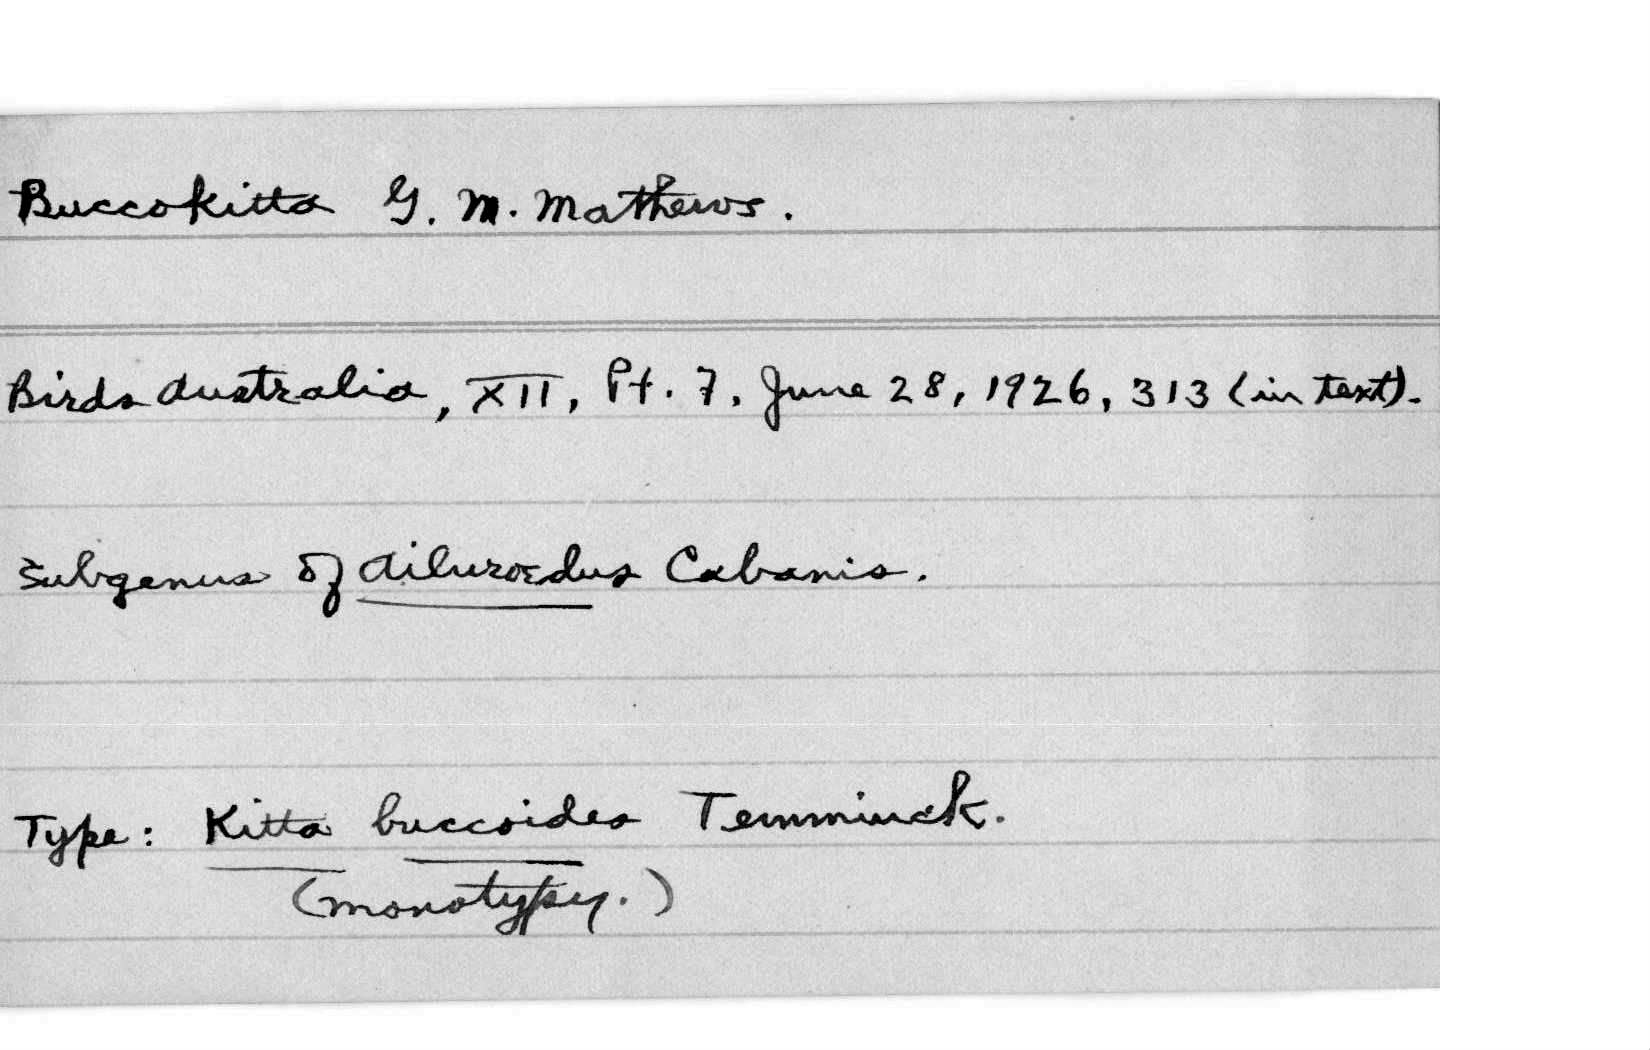 Buccokitta G. M. Mathews.
Birds Australia, XII, Pt. 7, June 28, 1926, 313 (in text).
Subgenus of Ailuroedus Cabanis.
Type: Kitta buccoides Temminck.
(monotypy.)